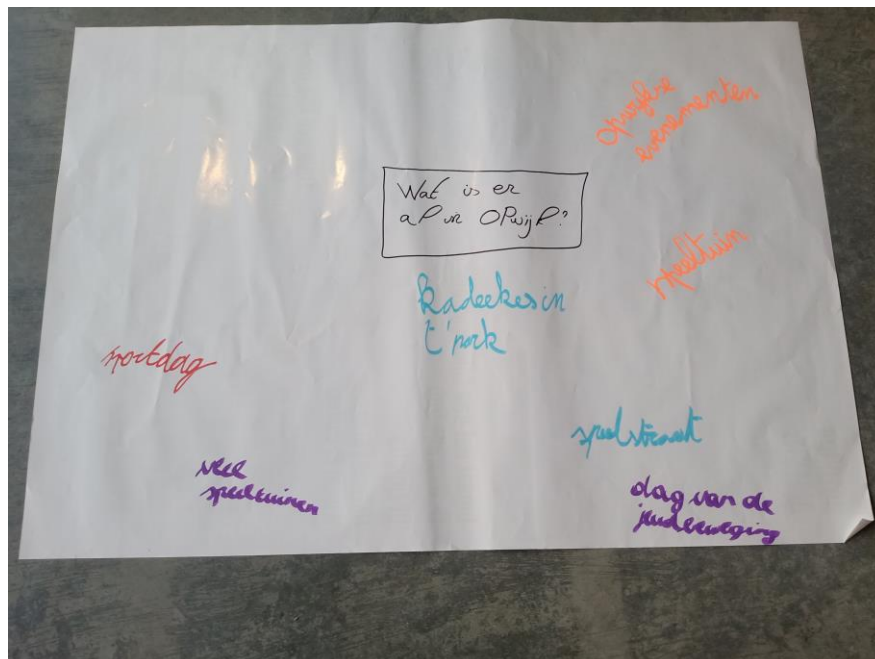 Opwijkse
evenementen
Wat is er
al in Opwijk?
speeltuin
kadeekes in
t'park
sportdag
speelstraat
veel
speeltuinen
dag van de
jeudbeweging